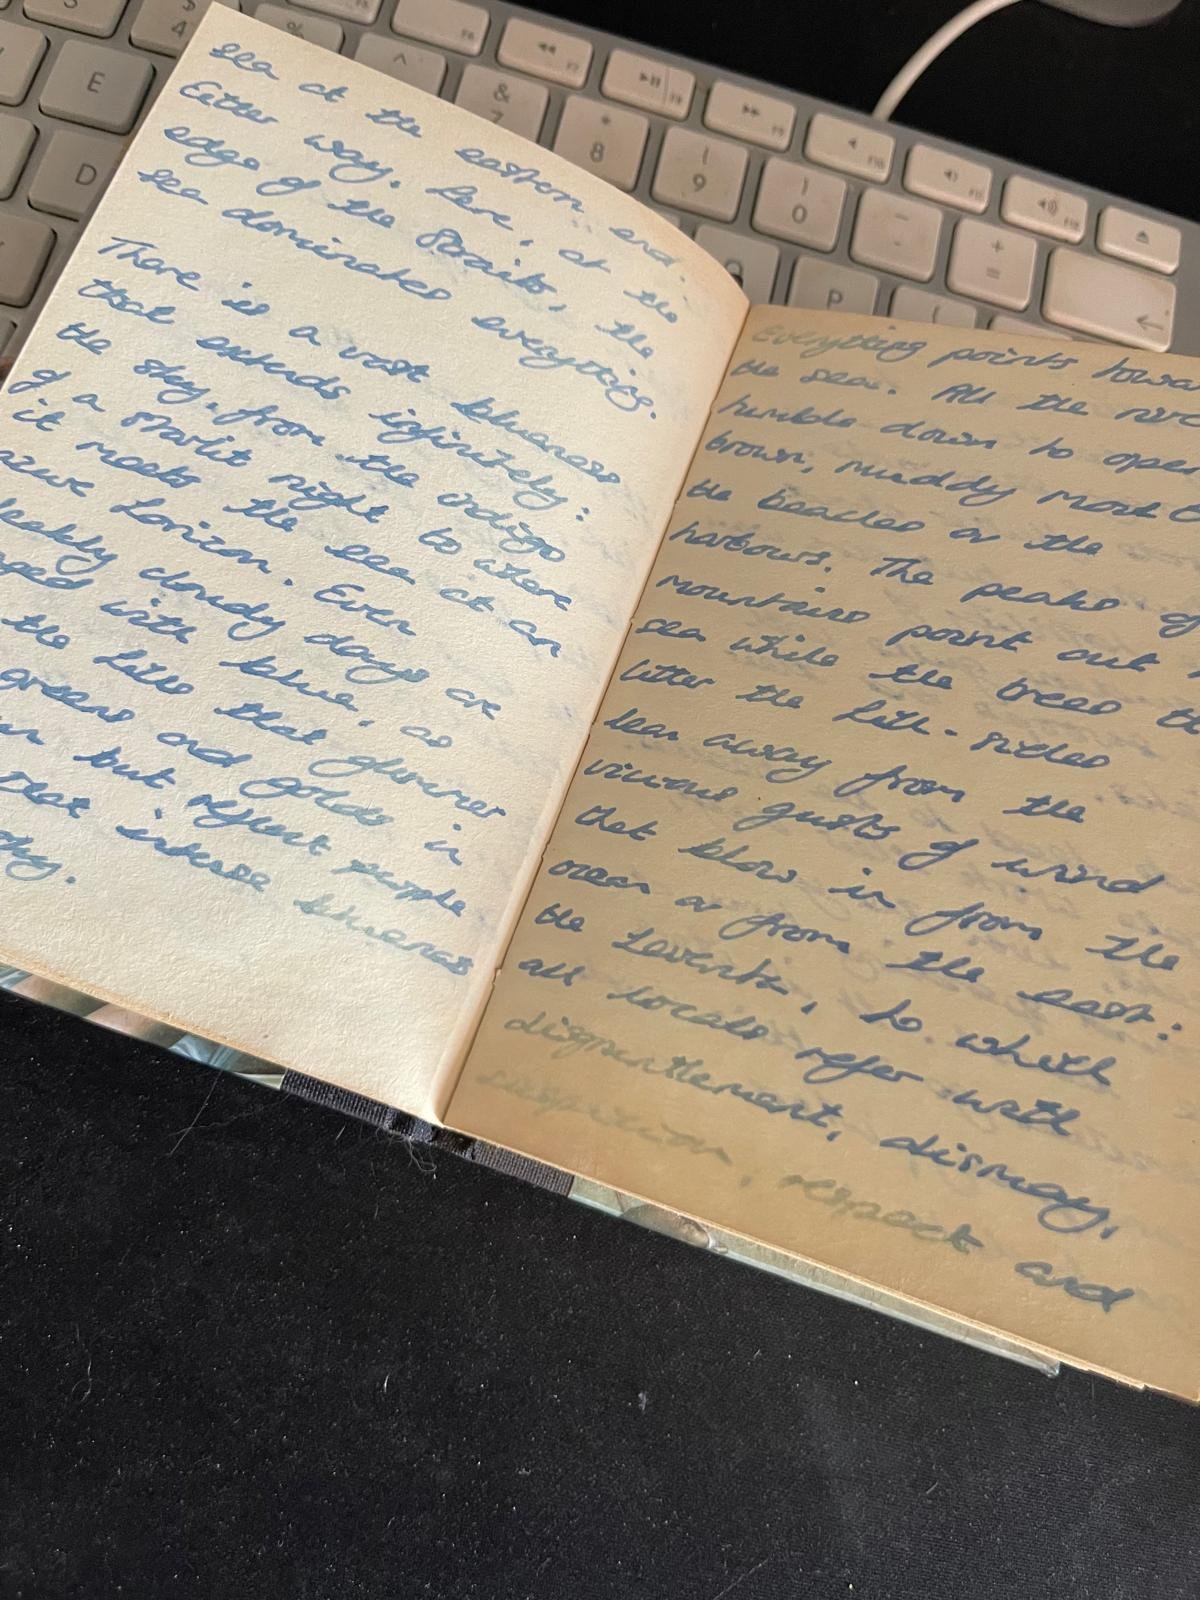 sea at the eastern end.
Either way, here, at the
edge of the Straits, the
sea dominates everything.
There is a vast blueness
that extends infinitely:
the sky, from the indigo
of a starlit night to where
it meets the sea at an
azure horizon. Even
bleakly cloudy days are
with blue, as
the hills that glimmer
greens and golds in
but reflect purple
that intense blueness
sky.
Everything points towa
the sea. All the rive
tumble down to open
brown, muddy mout
the beaches or the
harbours. The peaks of
mountains point out
sea while the trees th
litter the hill-sides
lean away from the
vicious gusts of wind
that blow in from the
ocean or from the east:
the Levente, to which
all locals refer with
disgruntlement, dismay,
suspicion, respect and
E
D
4
%
^
&
7
*
8
(
9
)
0
-
+
=
P
F6
F7
F8
F9
F10